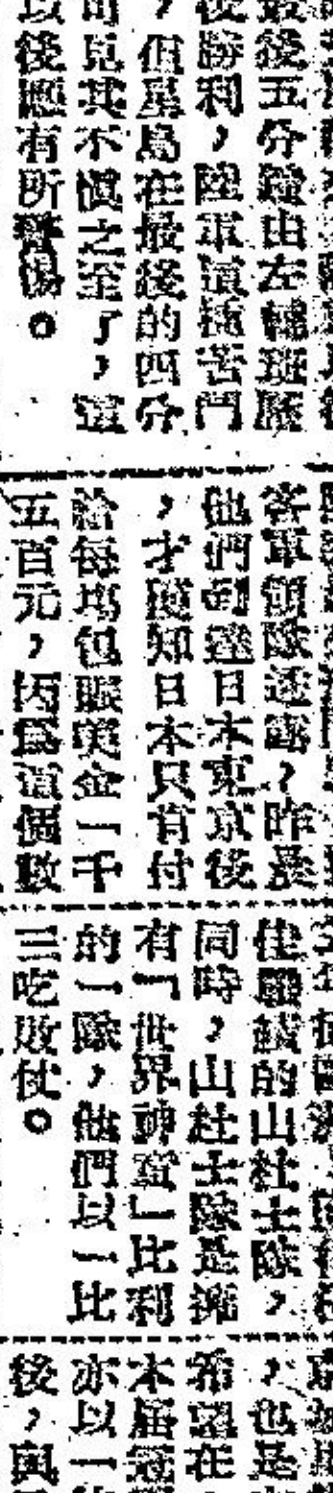 最後五分鐘由左輔班
後勝利,陸軍這樣苦鬥
,但星島在最後的四分
可見其不慎之至了,這
以後應有所警惕。
客軍領隊透露,昨晨
他們到達日本東京後
,才獲知日本只肯付
給每場包賬美金一千
五百元,因為這個數
佳聯績的山杜士隊,
同時,山杜士隊是擁
有「世界神童」比利
的一隊,他們以一比
三吃敗仗。
,也是
希望在
本屆冠
亦以一
後,與